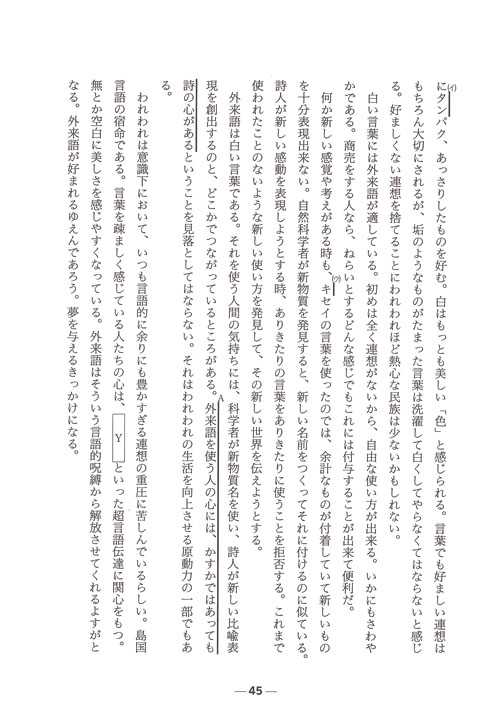 にタンパク、あっさりしたものを好む。白はもっとも美しい「色」と感じられる。言葉でも好ましい連想は
(イ)
もちろん大切にされるが、垢のようなものがたまった言葉は洗濯して白くしてやらなくてはならないと感じ
る。好ましくない連想を捨てることにわれわれほど熱心な民族は少ないかもしれない。
白い言葉には外来語が適している。初めは全く連想がないから、自由な使い方が出来る。いかにもさわや
かである。商売をする人なら、ねらいとするどんな感じでもこれには付与することが出来て便利だ。
何か新しい感覚や考えがある時も、キセイの言葉を使ったのでは、余計なものが付着していて新しいもの
(ウ)
を十分表現出来ない。自然科学者が新物質を発見すると、新しい名前をつくってそれに付けるのに似ている。
詩人が新しい感動を表現しようとする時、ありきたりの言葉をありきたりに使うことを拒否する。これまで
使われたことのないような新しい使い方を発見して、その新しい世界を伝えようとする。
外来語は白い言葉である。それを使う人間の気持ちには、科学者が新物質名を使い、詩人が新しい比喩表
現を創出するのと、どこかでつながっているところがある。外来語を使う人の心には、かすかではあっても
A
詩の心があるということを見落としてはならない。それはわれわれの生活を向上させる原動力の一部でもあ
る。
われわれは意識下において、いつも言語的に余りにも豊かすぎる連想の重圧に苦しんでいるらしい。島国
言語の宿命である。言葉を疎ましく感じている人たちの心は、Yといった超言語伝達に関心をもつ。
無とか空白に美しさを感じやすくなっている。外来語はそういう言語的呪縛から解放させてくれるよすがと
なる。外来語が好まれるゆえんであろう。夢を与えるきっかけになる。
— 45 —